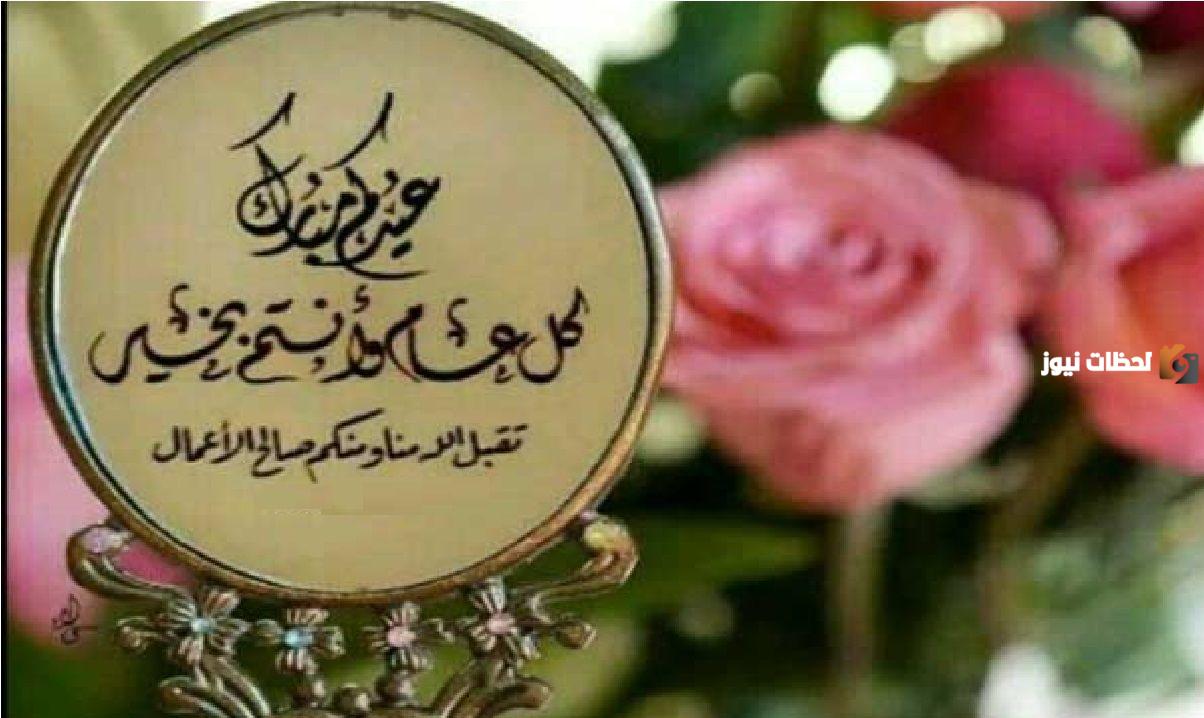 عيدكم مبارك
كل عام وأنتم بخير
تقبل الله منا ومنكم صالح الأعمال
لحظات نيوز